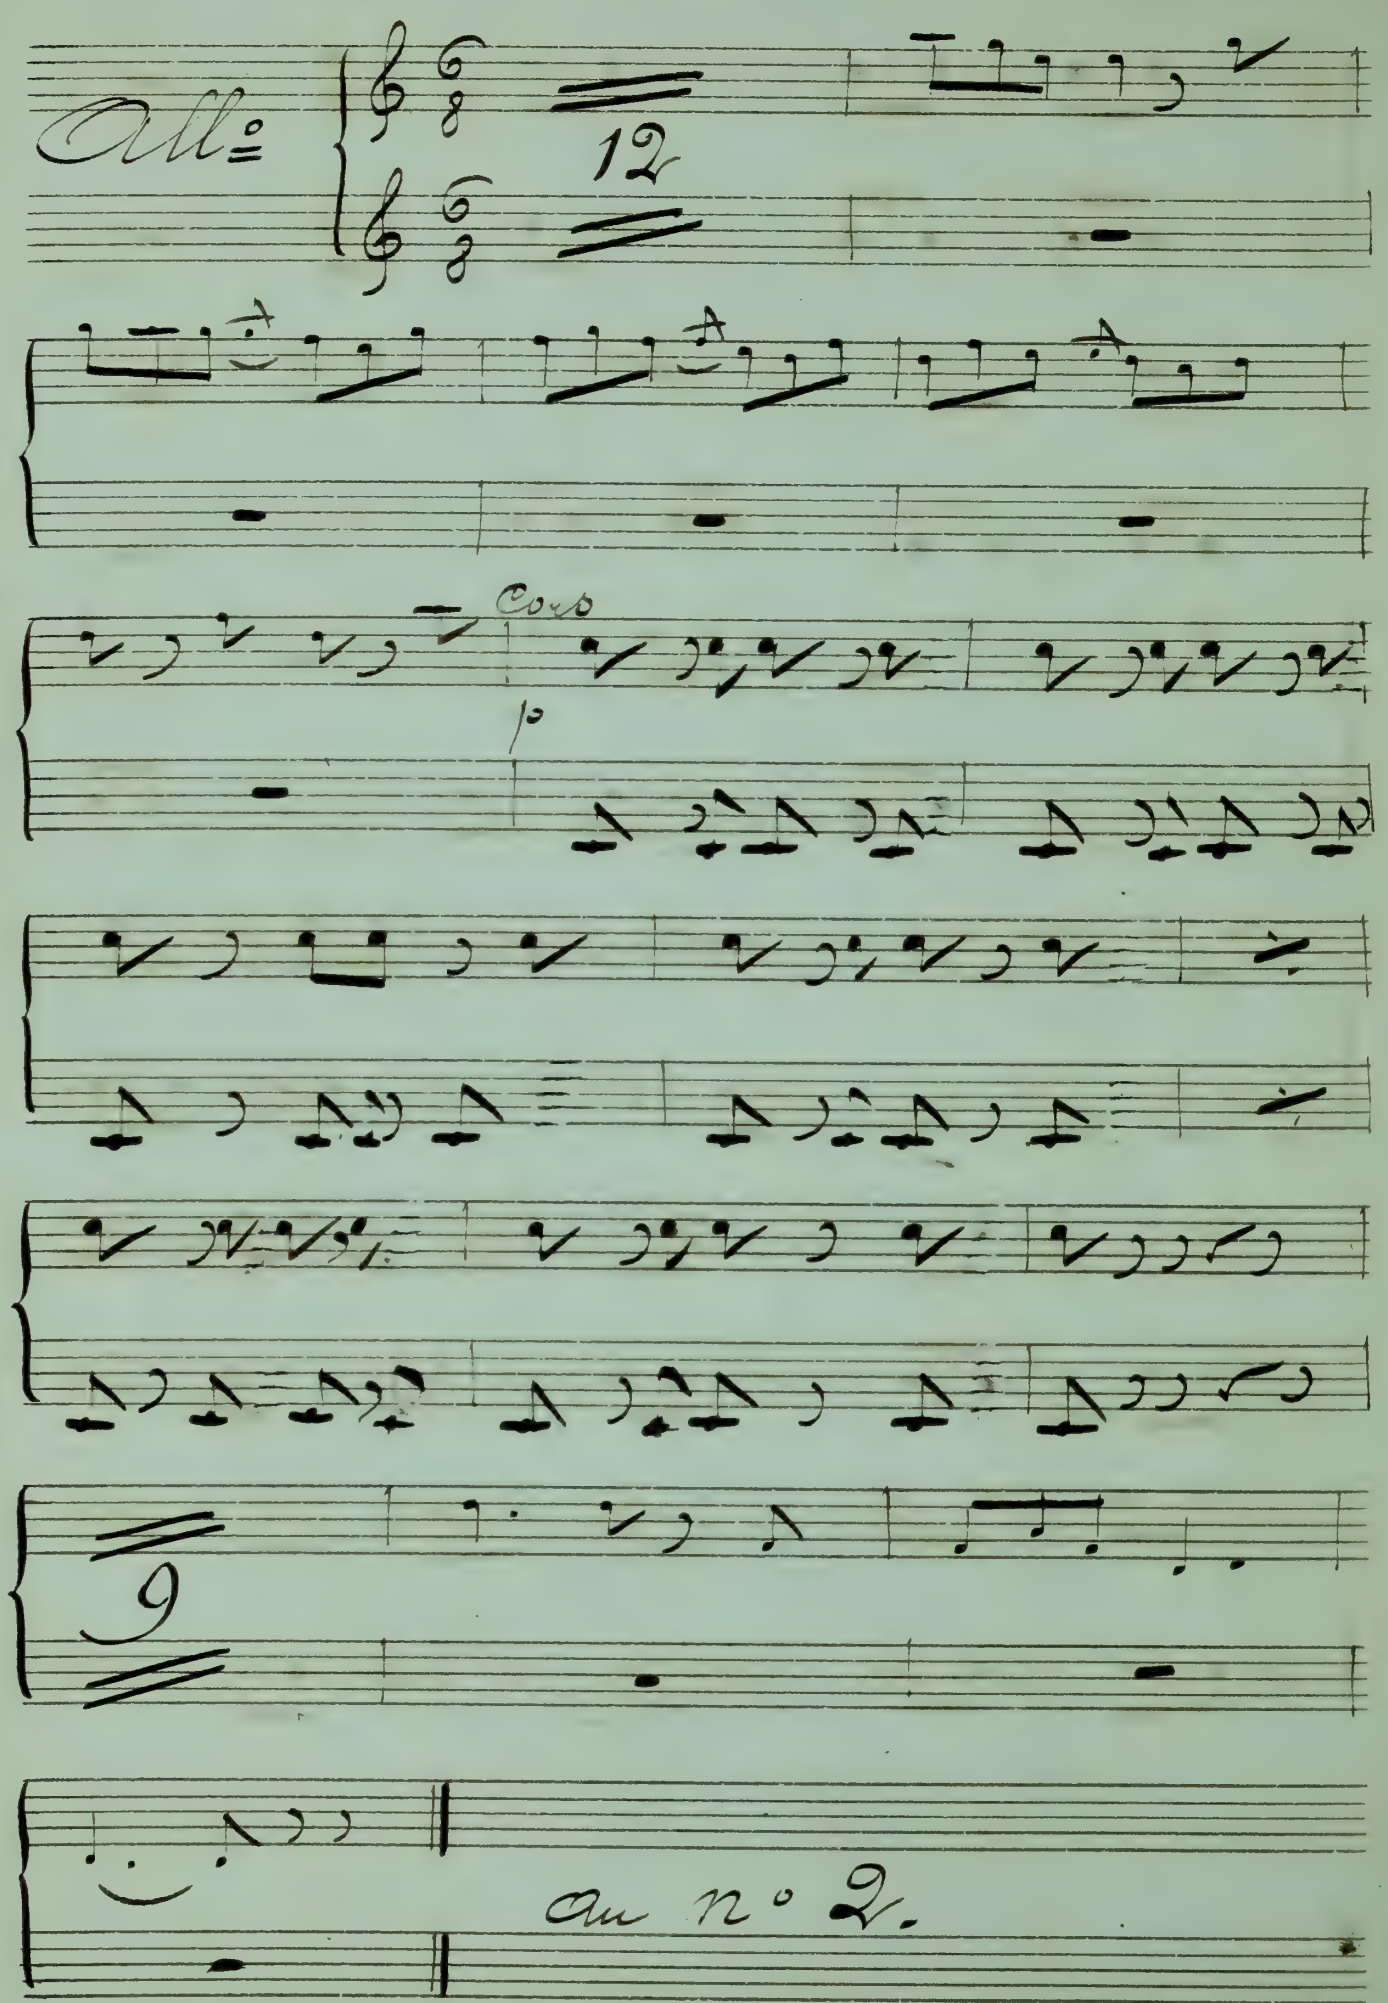 All°
6
8
12
6
8
Cors
p
9
au n° 2.